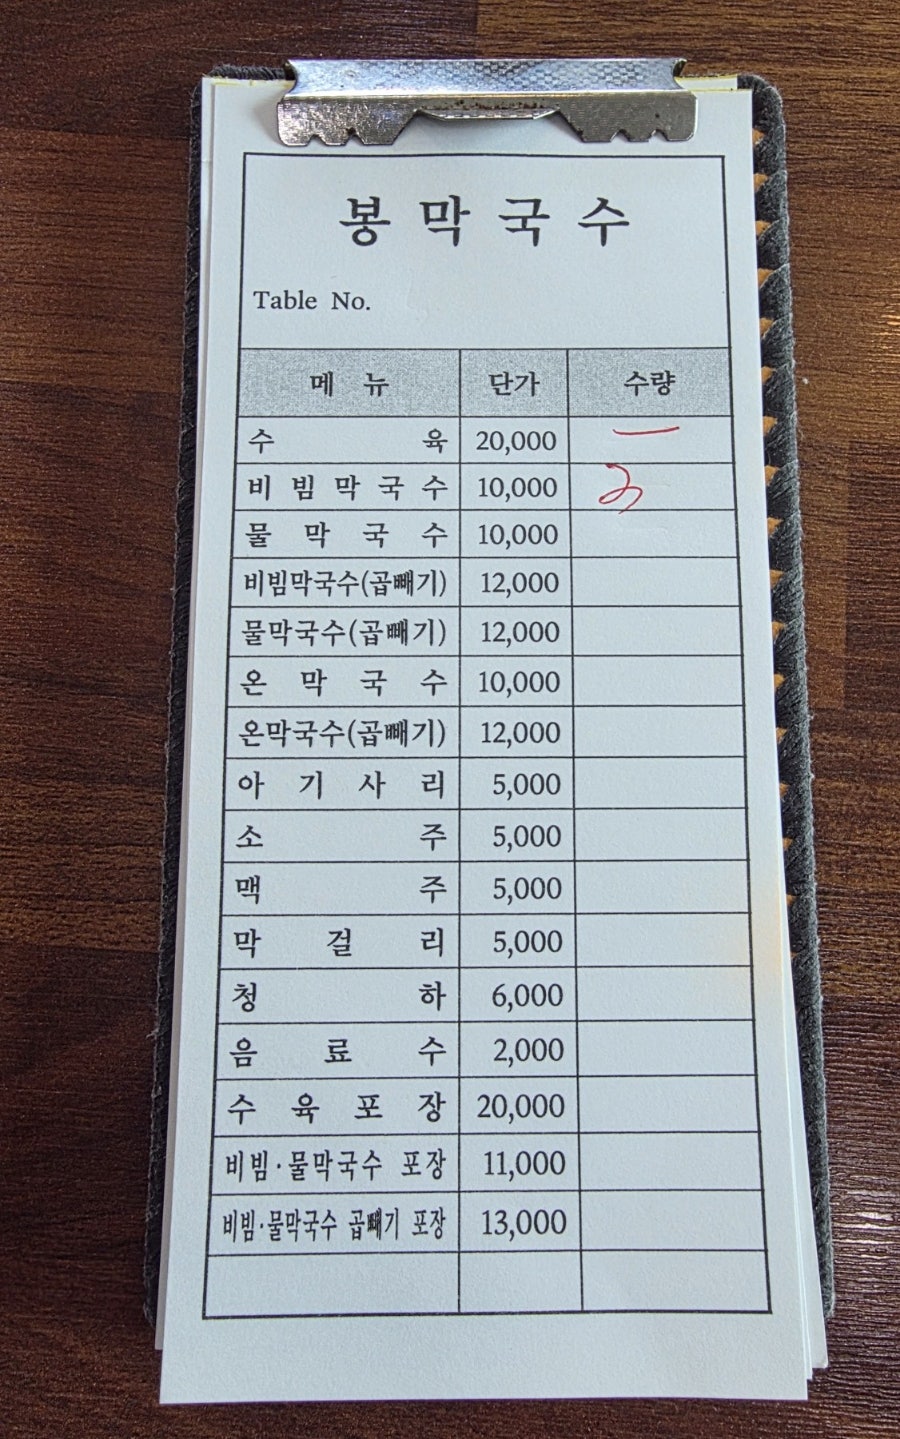 봉막국수
Table No.
메뉴 단가 수량
수육 20,000 一
비빔막국수 10,000
물막국수 10,000
비빔막국수(곱빼기) 12,000
물막국수(곱빼기) 12,000
온막국수 10,000
온막국수(곱빼기) 12,000
아기사리 5,000
소주 5,000
맥주 5,000
막걸리 5,000
청하 6,000
음료수 2,000
수육포장 20,000
비빔·물막국수 포장 11,000
비빔·물막국수 곱빼기 포장 13,000